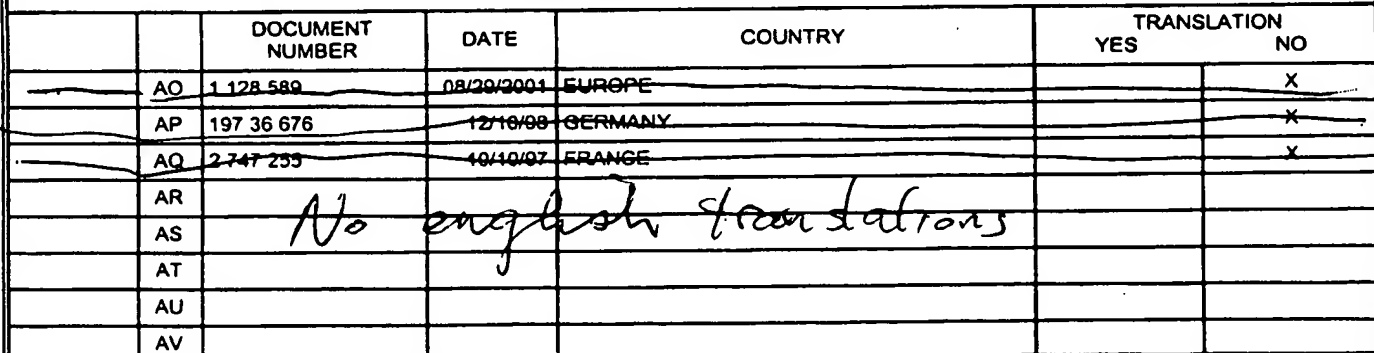 DOCUMENT NUMBER DATE COUNTRY TRANSLATION YES NO
AO 1 128 589 08/29/2001 EUROPE X
AP 197 36 676 12/10/98 GERMANY X
AQ 2 747 255 10/10/97 FRANCE X
AR
No english translations
AS
AT
AU
AV